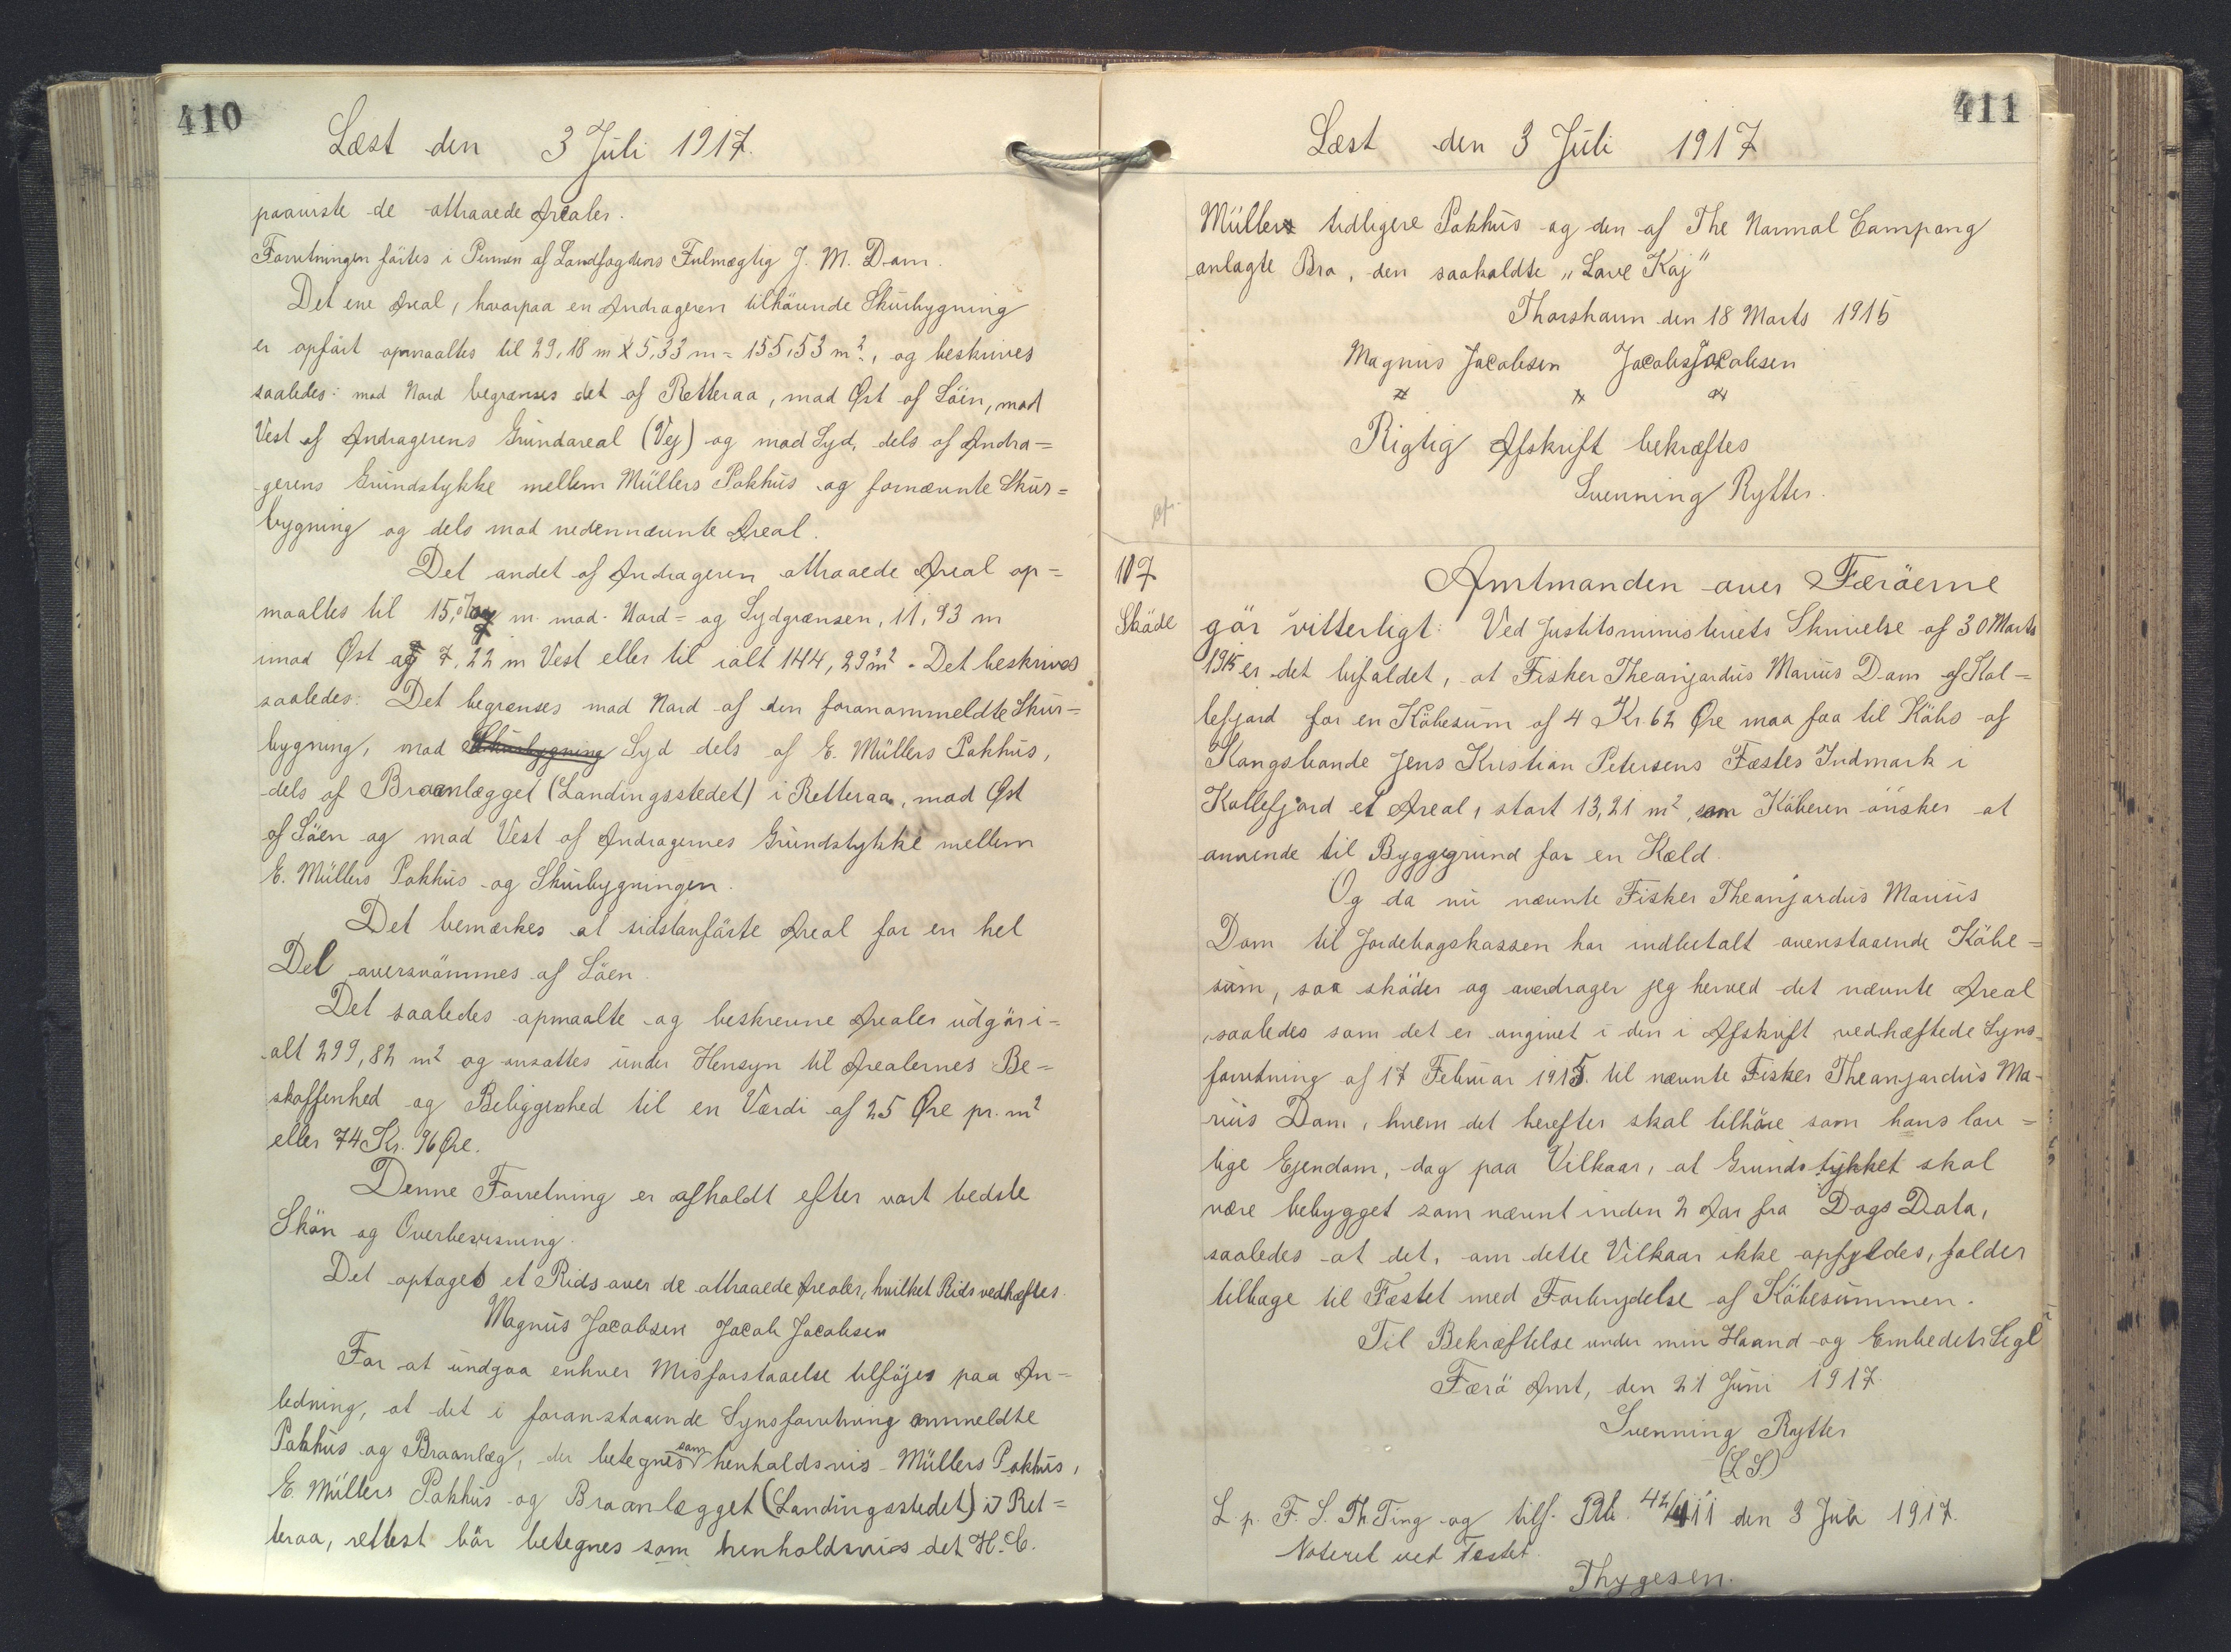 410
Læst den 3 Juli 1917.
paaviste de attraaede Arealer.
Forretningen førtes i Pennen af Landfogdens Fulmægtig J. M. Dam.
Det ene Areal, hvorpaa en Andrageren tilhörende Skurbygning
er opført opmaaltes til 29,18 m x 5,33 m = 155,53 m², og beskrives
saaledes: mod Nord begrænses det af Retteraa, mod Øst af Söen, mod
Vest af Andragerens Grundareal (Vej) og mod Syd, dels af Andra=
gerens Grundstykke mellem Müllers Pakhus og fornævnte Skur=
bygning og dels mod nedennævnte Areal.
Det andet af Andrageren attraaede Areal op=
maaltes til 15,07 m. mod Nord= og Sydgrænsen, 11,93 m
mod Øst og 7,22 m Vest eller til ialt 144,29 m². Det beskrives
saaledes: Det begrænses mod Nord af den foranommeldte Skur=
bygning, mod Skurbygning Syd dels af E. Müllers Pakhus,
dels af Broanlægget (Landingsstedet) i Retteraa, mod Øst
af Söen og mod Vest af Andragernes Grundstykke mellem
E. Müllers Pakhus og Skurbygningen.
Det bemærkes at sidstanförte Areal for en hel
Del oversvömmes af Söen.
Det saaledes opmaalte og beskrevne Arealer udgör i=
alt 299,82 m² og ansattes under Hensyn til Arealernes Be=
skaffenhed og Beliggenhed til en Værdi af 25 Øre pr. m²
eller 74 Kr. 96 Øre.
Denne Forretning er afholdt efter vort bedste
Skön og Overbevisning.
Det optages et Rids over de attraaede Arealer, hvilket Rids vedhæftes.
Magnus Jacobsen Jacob Jacobsen
For at undgaa enhver Misforstaaelse tilföjes paa An=
ledning, at det i foranstaaende Synsforretning ommeldte
Pakhus og Broanlæg, der betegnes som henholdsvis Müllers Pakhus,
E. Müllers Pakhus og Broanlægget (Landingsstedet) i Ret=
teraa, rettest bör betegnes som henholdsvis det H. C.
411
Læst den 3 Juli 1917
Müller tidligere Pakhus og den af The Normal Company
anlagte Bro, den saakaldte „Lave Kaj"
Thorshavn den 18 Marts 1915
Magnus Jacobsen Jacob Jacobsen
Rigtig Afskrift bekræftes
Svenning Rytter.
107
Skøde
Amtmanden over Færöerne
gör vitterligt: Ved Justitsministeriets Skrivelse af 30 Marts
1915 er det bifaldet, at Fisker Theanjardus Marius Dam af Kol=
lefjord for en Köbesum af 4 Kr 62 Øre maa faa til Köbs af
Kongsbonde Jens Kristian Petersens Fæstes Indmark i
Kollefjord et Areal, stort 13,21 m², som Köberen önsker at
anvende til Byggegrund for en Kæld.
Og da nu nævnte Fisker Theanjardus Marius
Dam til Jordebogskassen har indbetalt ovenstaaende Köbe=
sum, saa sköder og overdrager jeg herved det nævnte Areal
, saaledes som det er angivet i den i Afskrift vedhæftede Syns=
forretning af 17 Februar 1915. til nævnte Fisker Theanjardus Ma=
rius Dam, hvem det herefter skal tilhöre som hans lov=
lige Ejendom, dog paa Vilkaar, at Grundstykket skal
være bebygget som nævnt inden 2 Aar fra Dags Dato,
saaledes at det, om dette Vilkaar ikke opfyldes, falder
tilbage til Fæstet med Forbrydelse af Köbesummen.
Til Bekræftelse under min Haand og Embedets Segl
Færö Amt, den 21 Juni 1917.
Svenning Rytter
(L S)
L. p. F. S. Th. Ting og tilf. Ptb. 42/411 den 3 Juli 1917.
Noteret ved Fæstet.
Thygesen.